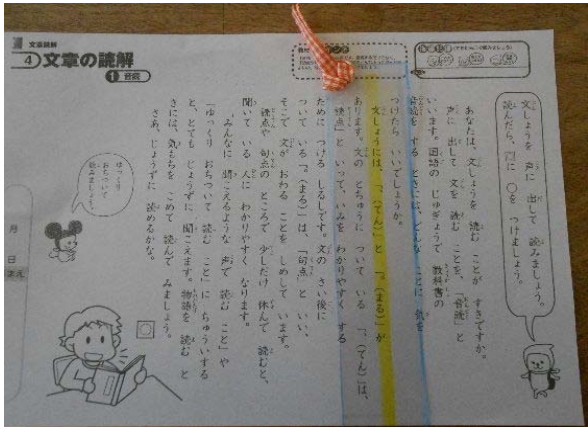 文章読解
4 文章の読解
1 音読
文しょうを 声に 出して 読みましょう。
読んだら、□に ○を つけましょう。
あなたは、文しょうを 読む ことが すきですか。
声に 出して 文を 読む ことを、「音読」と
いいます。国語の じゅぎょうで 教科書の
音読を する ときには、どんな ことに 気を
つけたら いいでしょうか。
文しょうには、「、(てん)」と 「。(まる)」が
あります。文の とちゅうに ついて いる 「、(てん)」は、
「読点」と いって、いみを わかりやすく する
ために つける しるしです。文の さい後に
ついて いる「。(まる)」は、「句点」と いい、
そこで 文が おわる ことを しめして います。
読点や 句点の ところで 少しだけ 休んで 読むと、
聞いて いる 人に わかりやすく なります。
「みんなに 聞こえるような 声で 読む こと」や
「ゆっくり おちついて 読む こと」に ちゅういする
と、とても じょうずに 聞こえます。物語を 読む と
きには、気もちを こめて 読んで みましょう。
さあ、じょうずに 読めるかな。
ゆっくり
おちついて
読みましょう。
月
日